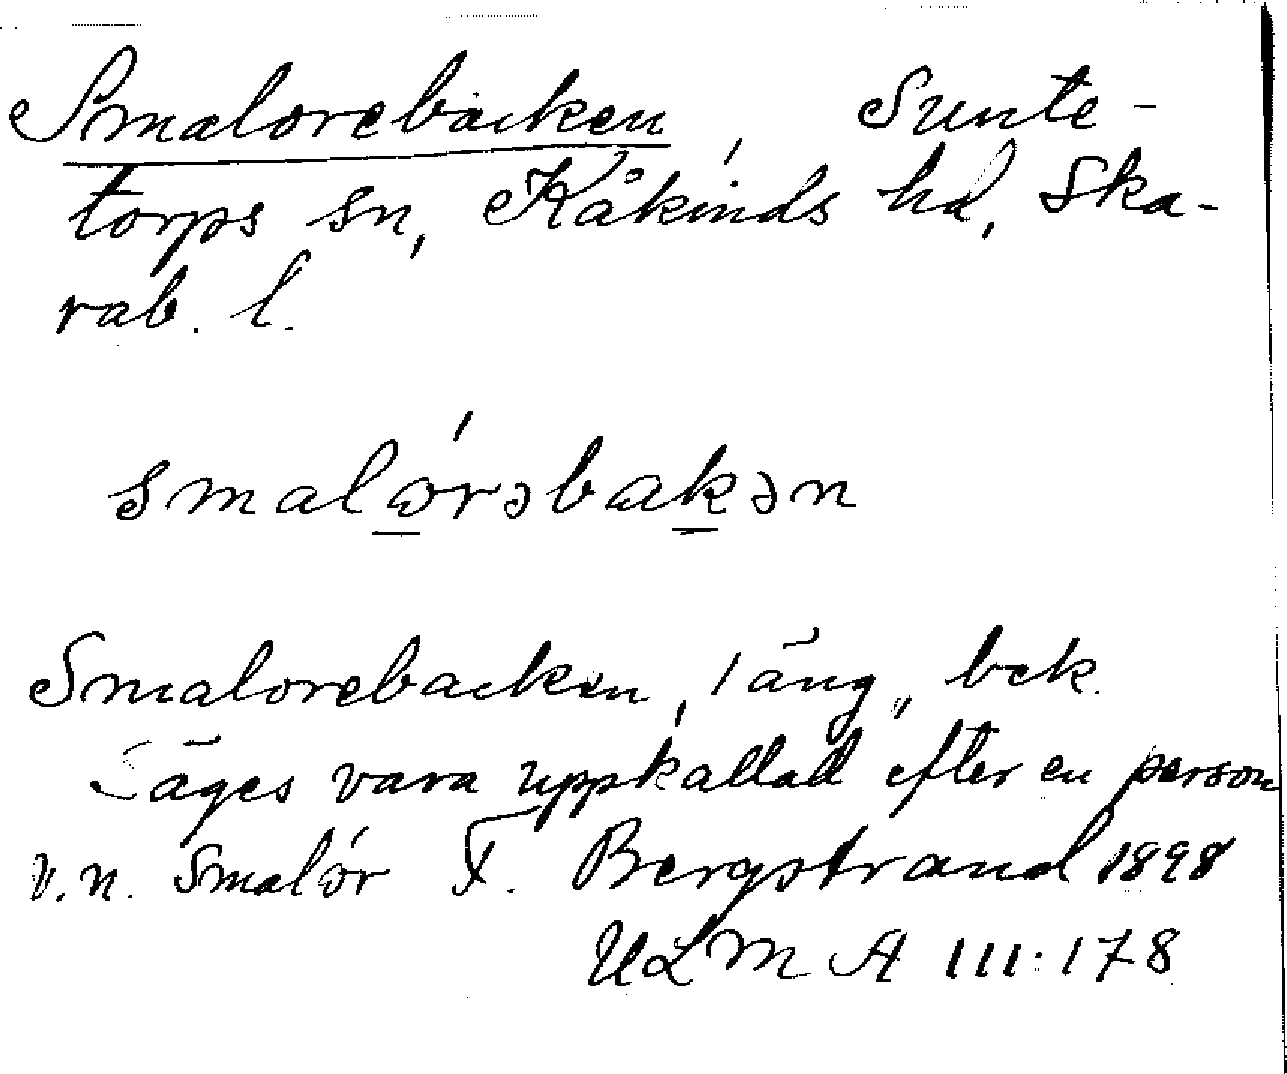 Smalorebacken, Sunte-
torps sn, Kåkinds hd, Ska-
rab. l.
smalórəbakən
Smalorebacken, 1 äng, bek.
Säges vara uppkallad efter en person
v.n. Smalór F. Bergstrand 1898
ULMA 111:178